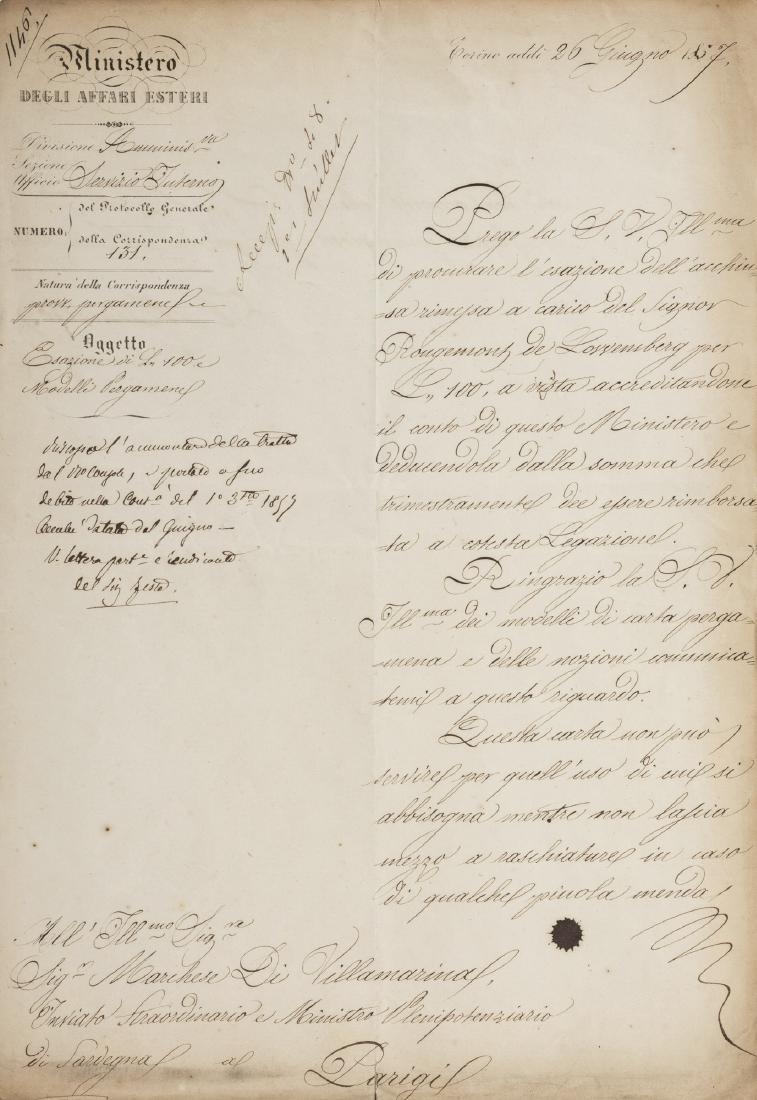 1146.
Ministero
DEGLI AFFARI ESTERI
Divisione Amminis.va
Sezione
Ufficio Servizio Interno
NUMERO
del Protocollo Generale
della Corrispondenza
131.
Natura della Corrispondenza
pergamene
Oggetto
Esazione di L. 100 e
Modelli Pergamene
l'ammontare della tratta
dal, e portato a suo
debito nella Cont.à del 1° 3.tre 1857
Giugno —
V. lettera part.e e rendiconto
del Sig.
Torino addì 26 Giugno 1857.
Prego la S. V. Ill.ma
di procurare l'esazione dell'acchiu-
-sa rimessa a carico del Signor
Rougemont de Lowemberg per
L. 100, a vista accreditandone
il conto di questo Ministero e
deducendola dalla somma che
trimestramente dee essere rimborsa-
ta a cotesta Legazione.
Ringrazio la S. V.
Ill.ma dei modelli di carta perga-
mena e delle nozioni comunica-
temi a questo riguardo.
Questa carta non può
servire per quell'uso di cui si
abbisogna mentre non lascia
mezzo a raschiature in caso
di qualche piccola menda,
All' Ill.mo Sig.re
Sig.r Marchese Di Villamarina,
Inviato Straordinario e Ministro Plenipotenziario
di Sardegna a
Parigi